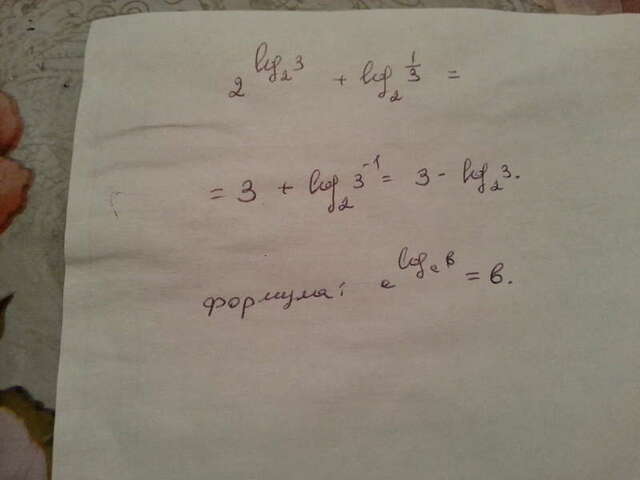 2^{log_2 3} + log_2 \frac{1}{3} =
= 3 + log_2 3^{-1} = 3 - log_2 3.
формула: c^{log_c в} = в.